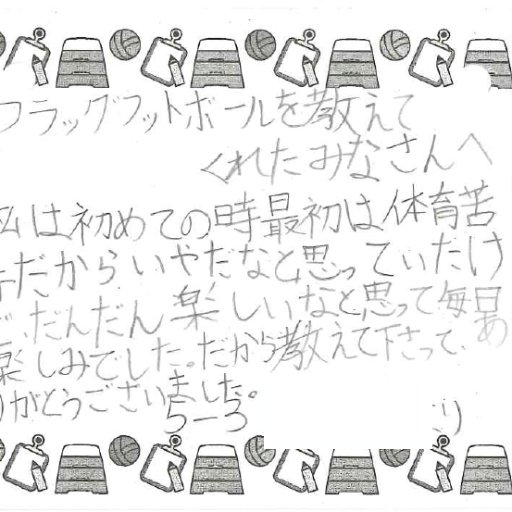 フラッグフットボールを教えて
くれたみなさんへ
私は初めての時最初は体育苦
手だからいやだなと思っていたけ
ど、だんだん楽しいなと思って毎日
楽しみでした。だから教えて下さって、あ
りがとうございました。
5-3
り